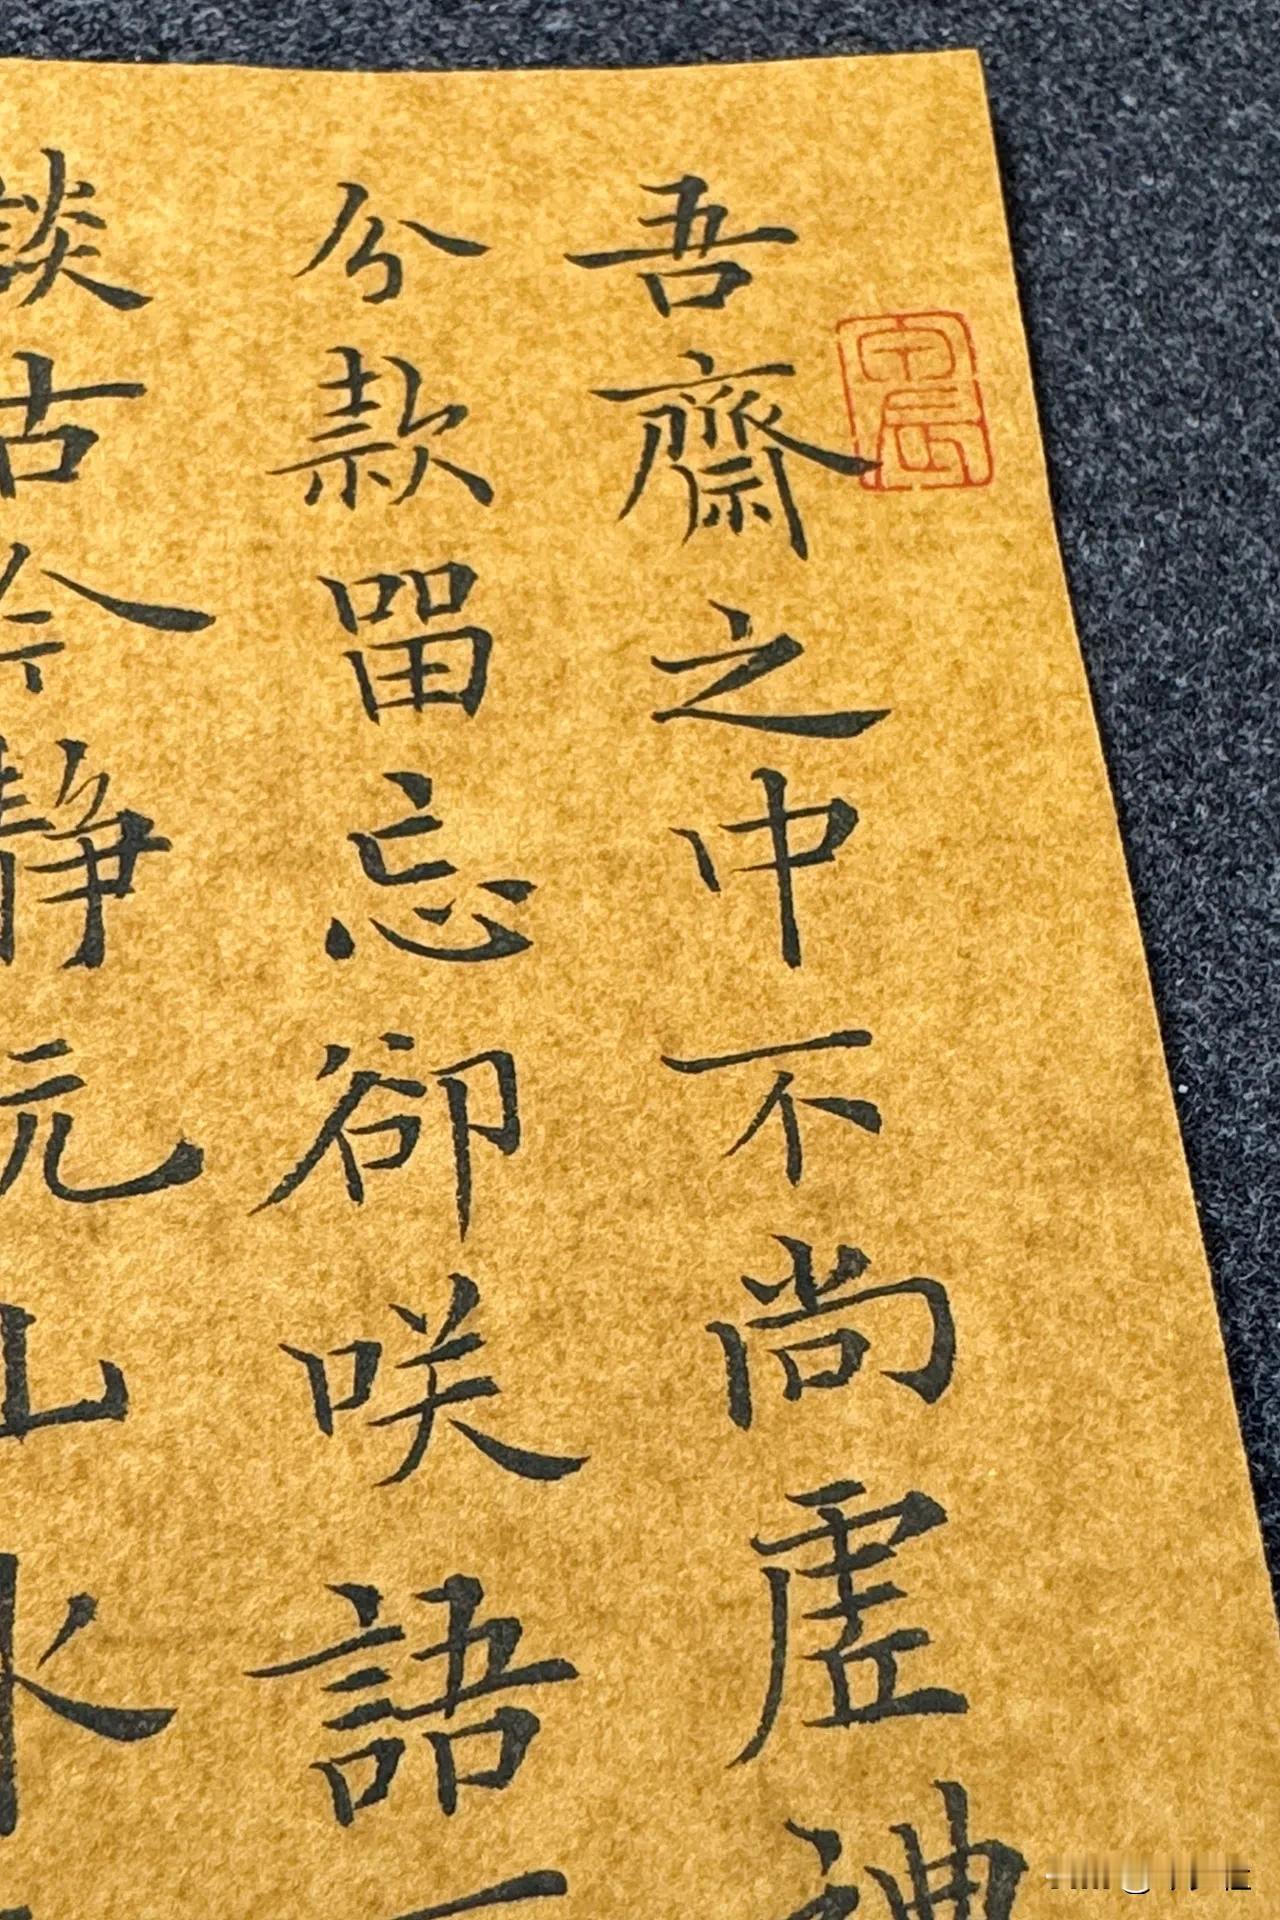 吾齋之中不尚虛禮
分款留忘卻咲語
談古今靜玩山水